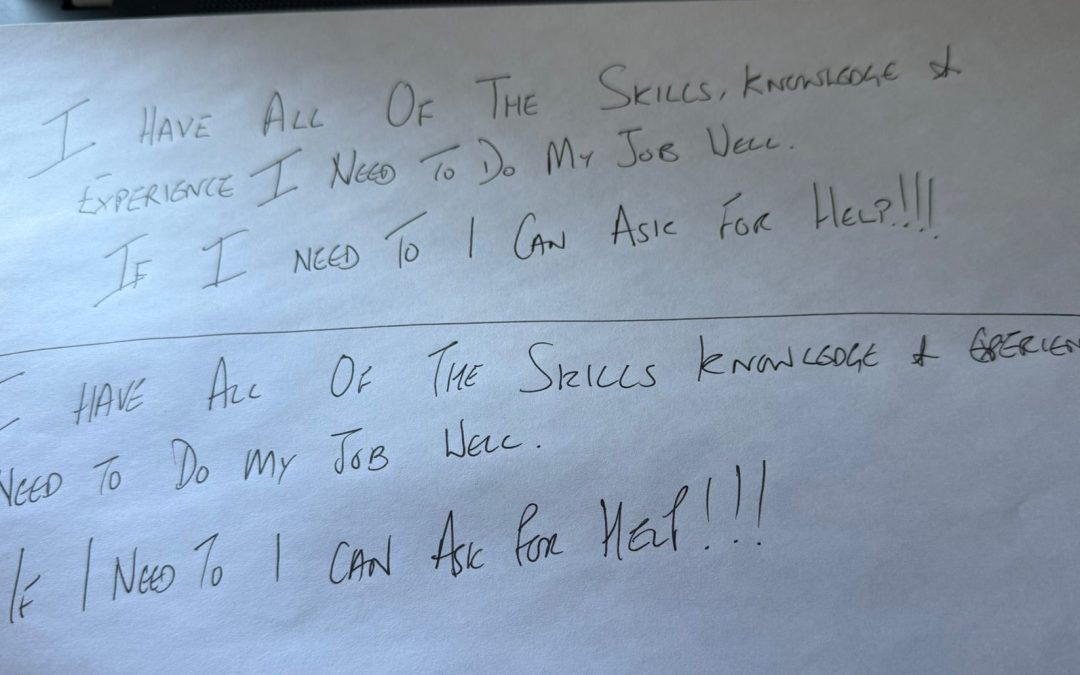 I HAVE ALL OF THE SKILLS, KNOWLEDGE &
EXPERIENCE I NEED TO DO MY JOB WELL.
IF I NEED TO I CAN ASK FOR HELP!!!
I HAVE ALL OF THE SKILLS KNOWLEDGE & EXPERIEN
NEED TO DO MY JOB WELL.
IF I NEED TO I CAN ASK FOR HELP!!!